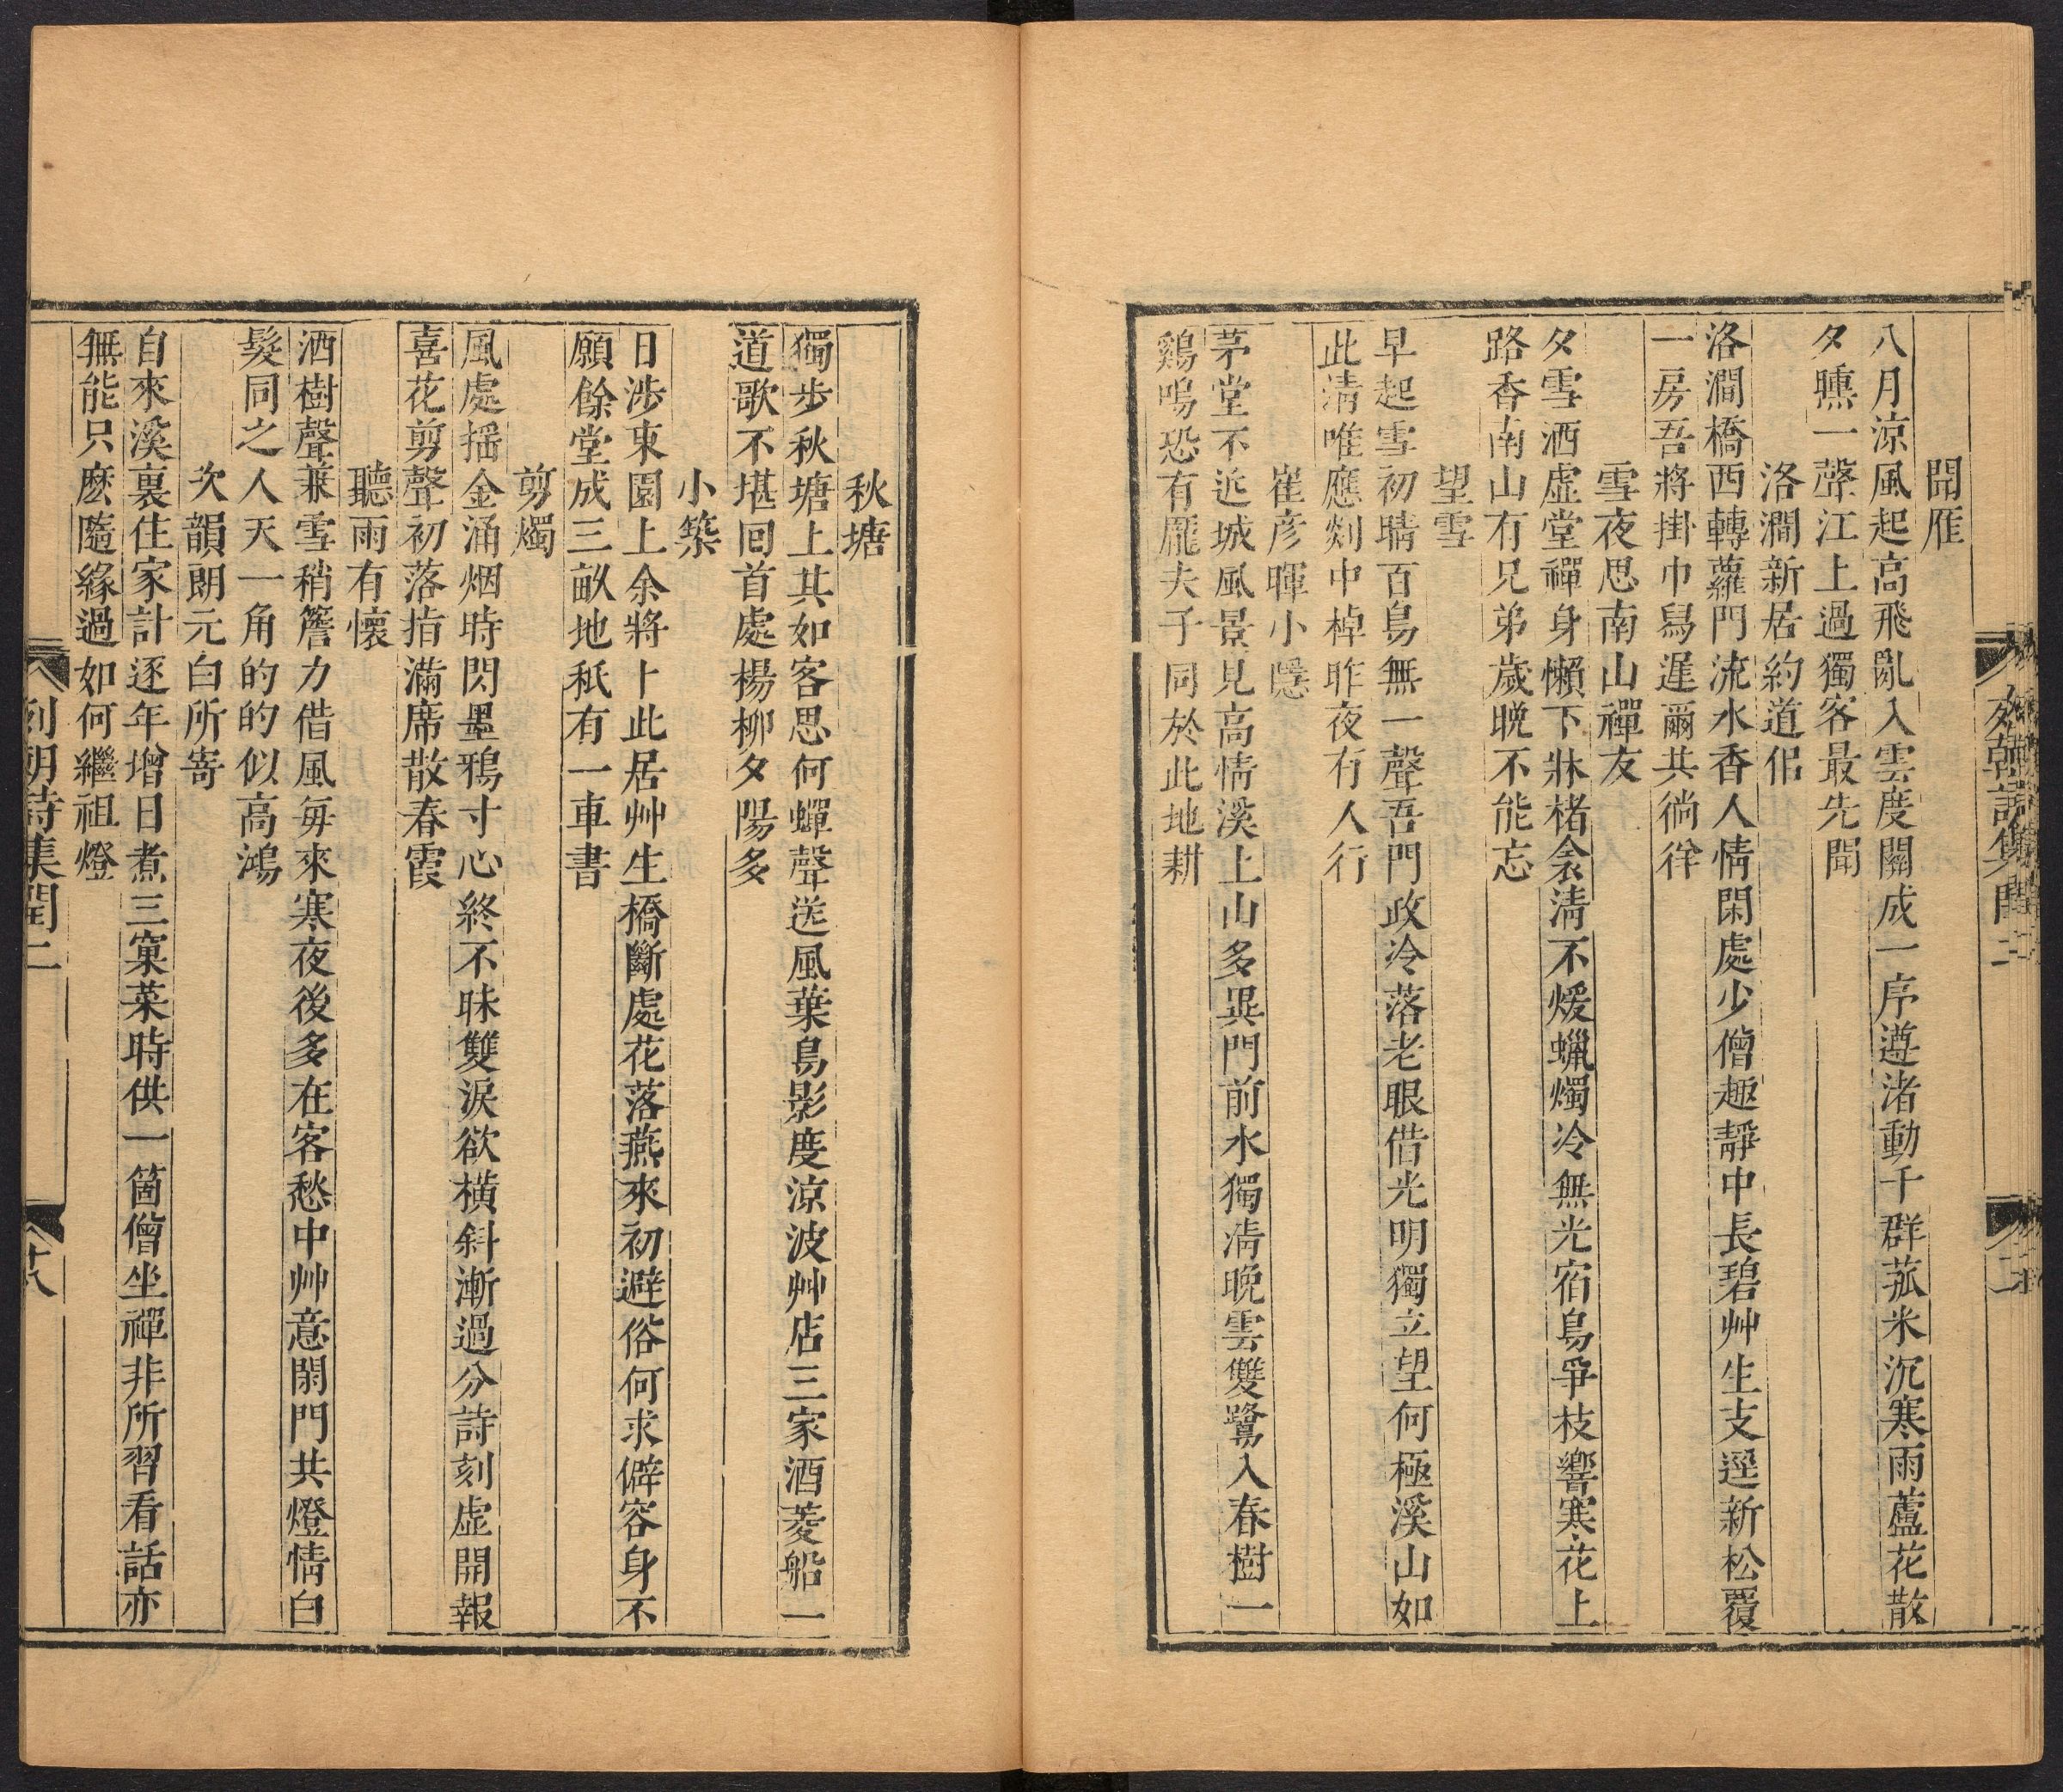 聞雁
八月涼風起高飛亂入雲度關成一序遵渚動千群菰米沉寒雨蘆花散
夕曛一聲江上過獨客最先聞
洛澗新居約道侶
洛澗橋西轉蘿門流水香人情閑處少僧趣靜中長碧艸生支逕新松覆
一房吾將掛巾舄遲爾共徜徉
雪夜思南山禪友
夕雪洒虛堂禪身懶下牀楮衾清不煖蠟燭冷無光宿鳥爭枝響寒花上
路香南山有兄弟歲晚不能忘
望雪
早起雪初晴百鳥無一聲吾門政冷落老眼借光明獨立望何極溪山如
此清唯應剡中棹昨夜有人行
崔彥暉小隱
茅堂不近城風景見高情溪上山多異門前水獨清晚雲雙鷺入春樹一
鷄鳴恐有龐夫子同於此地耕
秋塘
獨步秋塘上其如客思何蟬聲送風葉鳥影度涼波艸店三家酒菱船一
道歌不堪回首處楊柳夕陽多
小築
日涉東園上余將卜此居艸生橋斷處花落燕來初避俗何求僻容身不
願餘堂成三畝地秖有一車書
剪燭
風處搖金涌烟時閃墨鴉寸心終不昧雙淚欲橫斜漸過分詩刻虛開報
喜花剪聲初落指滿席散春霞
聽雨有懷
洒樹聲兼雪稍簷力借風每來寒夜後多在客愁中艸意閑門共燈情白
髮同之人天一角的的似高鴻
次韻朗元白所寄
自來溪裏住家計逐年增日煮三窠菜時供一箇僧坐禪非所習看話亦
無能只麽隨緣過如何繼祖燈
列朝詩集閏二
十八